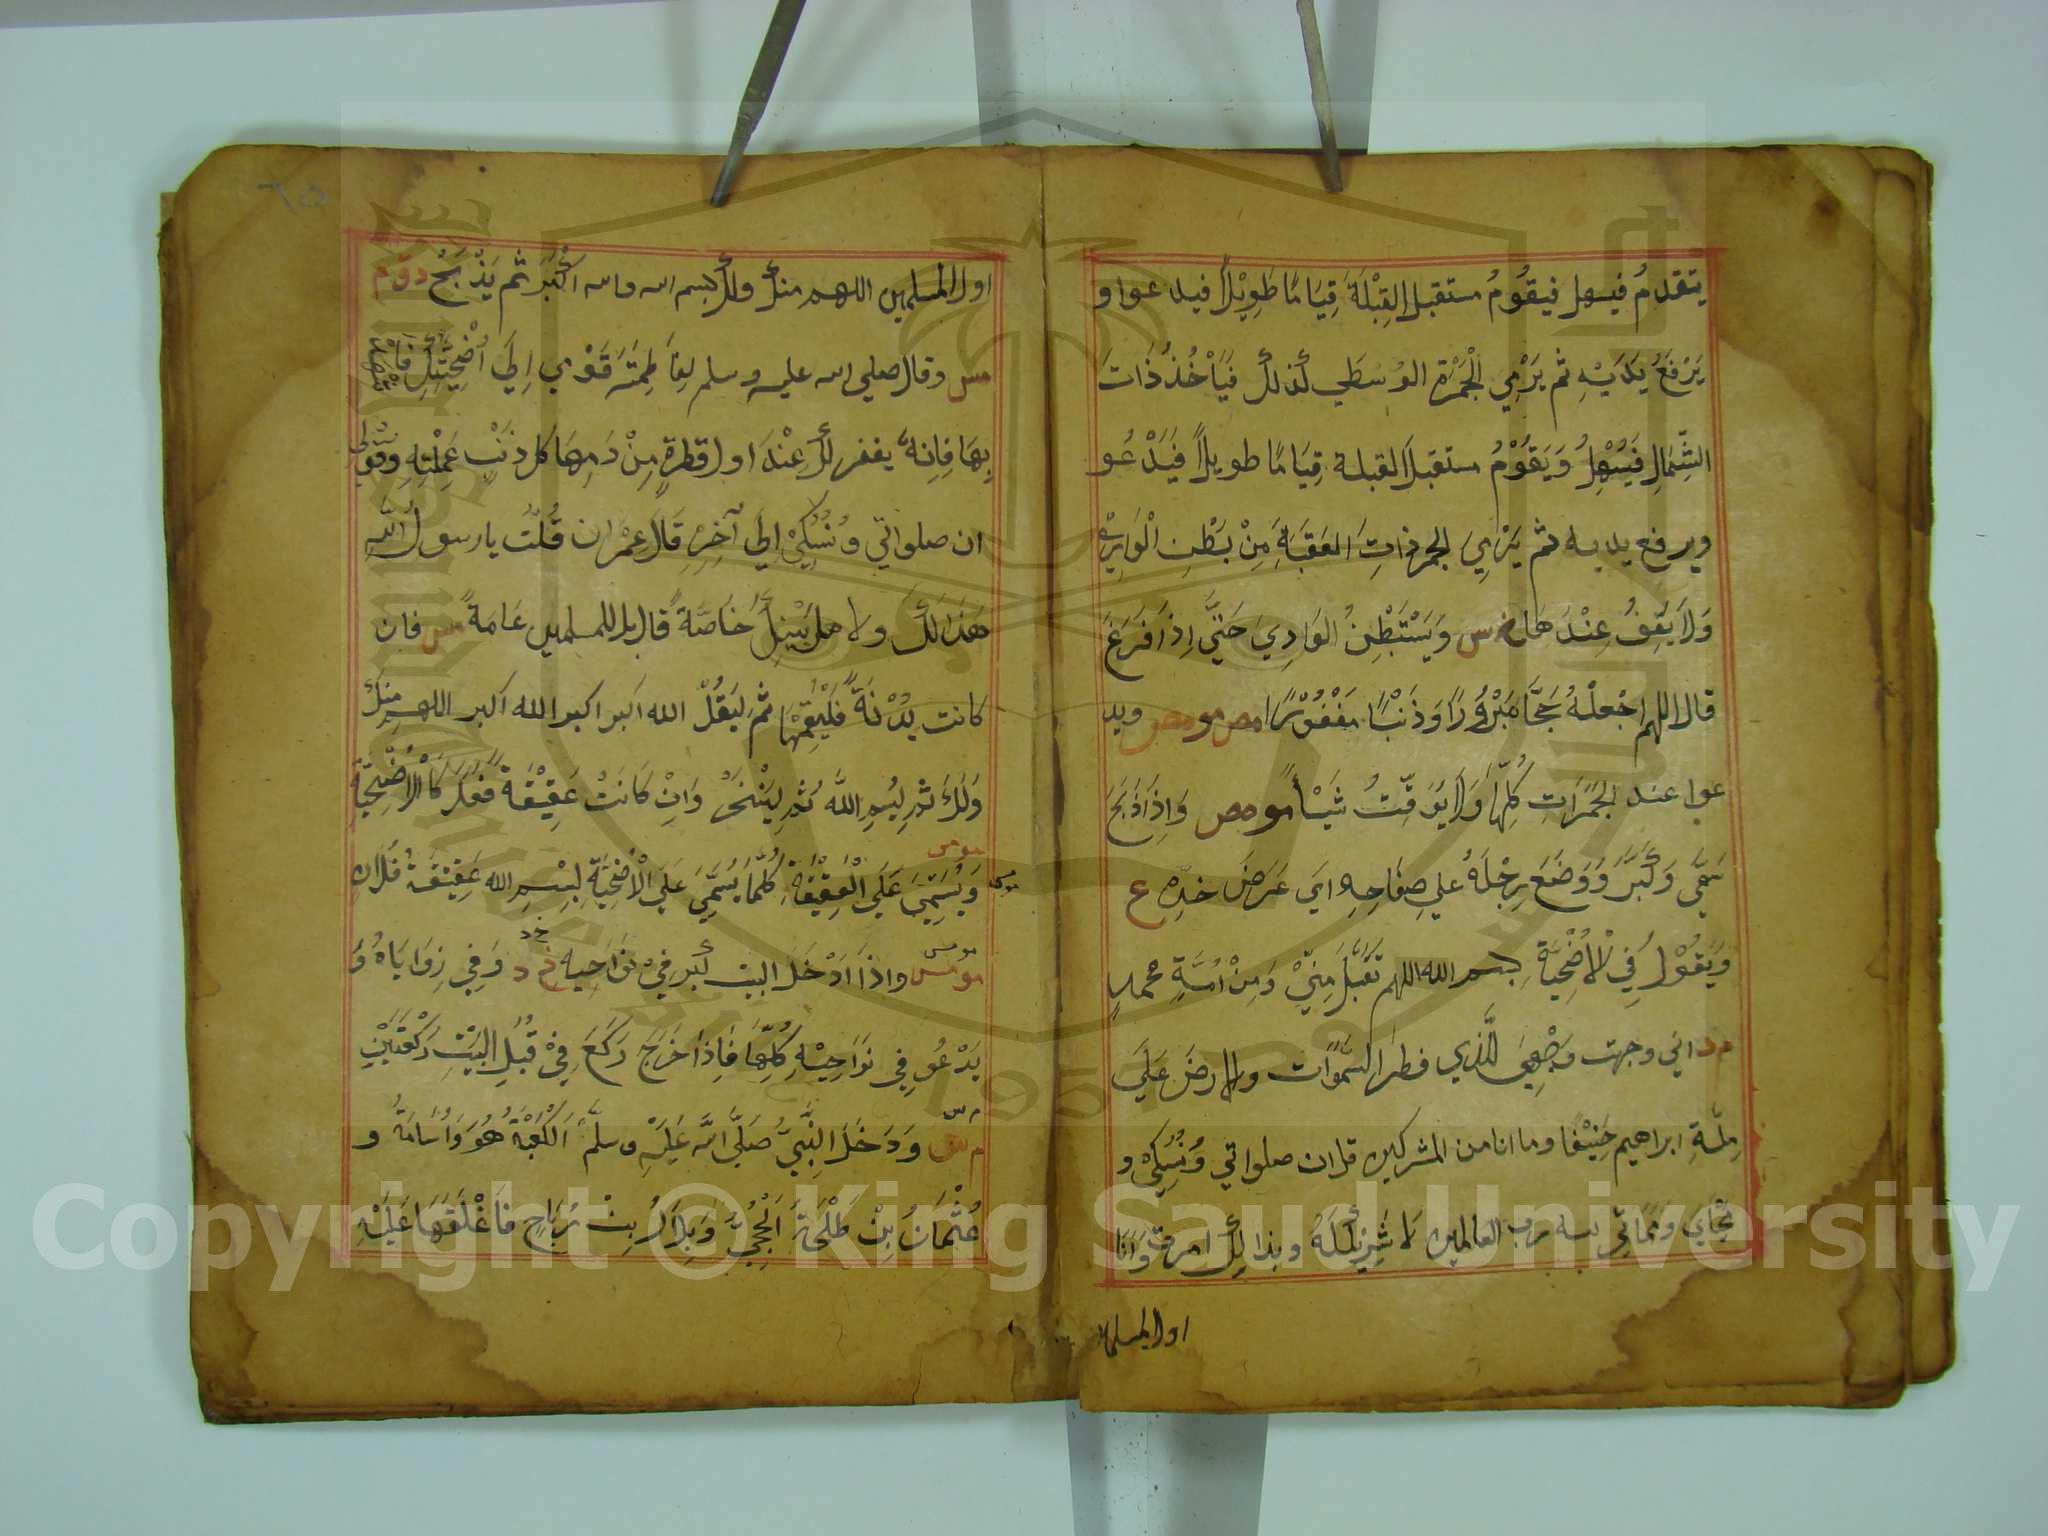 يتقدمُ فيسهل فيقُومُ مستقبل القِبْلَةَ قِيَامًا طَوِيْلاً فيد عوا و
يَرْفَعُ يَدَيْهِ ثم يَرْمِي الْجَمْرَةَ الوُسْطَي كذلك فَيَأْخُذُ ذَاتَ
الشِّمَالِ فَيُسْهِلُ وَيَقُوْمُ مستقبل القبلة قِيَامًا طويلاً فَيَدْعُو
ويرفع يديه ثم يَرْمِيَ الجمر ذاتَ العَقَبَةِ مِنْ بَطْنِ الْوَادِيْ
وَلاَ يَقِفُ عِنْدَهَا خ س وَيَسْتَبْطِنُ الوَادِيَ حَتَّي اِذَا فَرَغَ
قال اللهم اجْعَلْهُ حَجًّا مَبْرُوْرًا وَذَنْبًا مَغْفُوْرًا مص مو مص ويد
عوا عند الجَمَرَاتِ كُلِّهَا وَلاَ يُوَقِّتُ شَيْأً مو مص وَاِذَا ذَبَحَ
سَمَّي وَكَبَّرَ وَوَضَعَ رِجْلَهُ علي صِفَاحِهِ اي عَرَضَ خدِّهِ ع
وَيَقُوْلُ فِي الْاُضْحِيَّةِ بسم الله اللهم تَقَبَّلْ مِنِّيْ وَمِنْ اُمَّةِ محمدٍ
م د اني وجهت وَجْهِيَ لِلَّذِي فطر السَّموَات والارضَ عَلَي
مِلَّةِ ابراهيم حَنِيْفًا وما انا من المشركين قل ان صلواتي وَنُسُكِيْ و
مَحْيَاي وَمَمَاتِي لله رب العالمين لاَ شَرِيْكَ لَهُ وبذالك امرت وَاَنَا
اول المسلمين
اول المسلمين اللهم منك ولك بسم الله والله اكْبَرُ ثم يَذْبَحُ د ق م
مس وقال صلي الله عليه وسلم لِفَاطِمَتَه قَوْمِي اِلَي اُضْحِيَّتِكِ فَاشْهَدِي
بِهَا فِانِهُ يغفر لكِ عِنْدَ اول قطرةٍ مِنْ دَمِهَا كل ذَنْبٍ عَمِلْتِهِ وَقُوْلِي
ان صلواتي وَنُسُكِيْ اِلَي آخِرِهِ قَالَ عِمْرَان قُلْتُ يا رسولُ اللهِ
هَذَا لَكَ ولاهل بَيْتِكَ خَاصَّةً قال بل للمسلمين عَامَةً مس فان
كانت بَدَنَةً فَلْيُقِمْهَا ثُمَّ لِيَقُلْ الله اكبر اكبر الله اكبر اللهم مِنْكَ
وَلَكَ ثم لِيُسَمِ اللَّهَ ثم لِيَنْحَرْ وَاِنْ كَانَتْ عَقِيْقَةً فَعَلَ كَالْاُضْحِيَّةِ
مو مس
وَيُسَمِّيَ عَلَي الْعَقِيْقَةِ كُلَّمَا يُسَمِّيَ عَلَي الْاُضْحِيَّةِ بِسْمِ الله عَقِيْقَةُ فُلَانٍ
مو مس واذا اَدْخَلَ البيت كَبَّرَ فِيْ نَوَاحِيه خ د وَفِي زِوَايَاهُ وَ
يَدْعُو فِي نَوَاحِيْهِ كُلِّهَا فَاِذَا خَرَجَ رَكَعَ فِيْ قُبُلِ البَيْتِ رَكْعَتَيْنِ
م س وَدَخَلَ النَّبِيُّ صَلَّي اللهَ عَلَيْهِ وسلَّمْ الْكَعْبَةَ هُوَ وَاُسَامَةُ و
عُثْمَانُ بِنْ طَلْحَةَ الْحَجَبِيُّ وَبِلَالُ بِنْ رَبَاحٍ فَاَغْلَقَهَا عَلَيْهِ
Copyright © King Saud University
1957